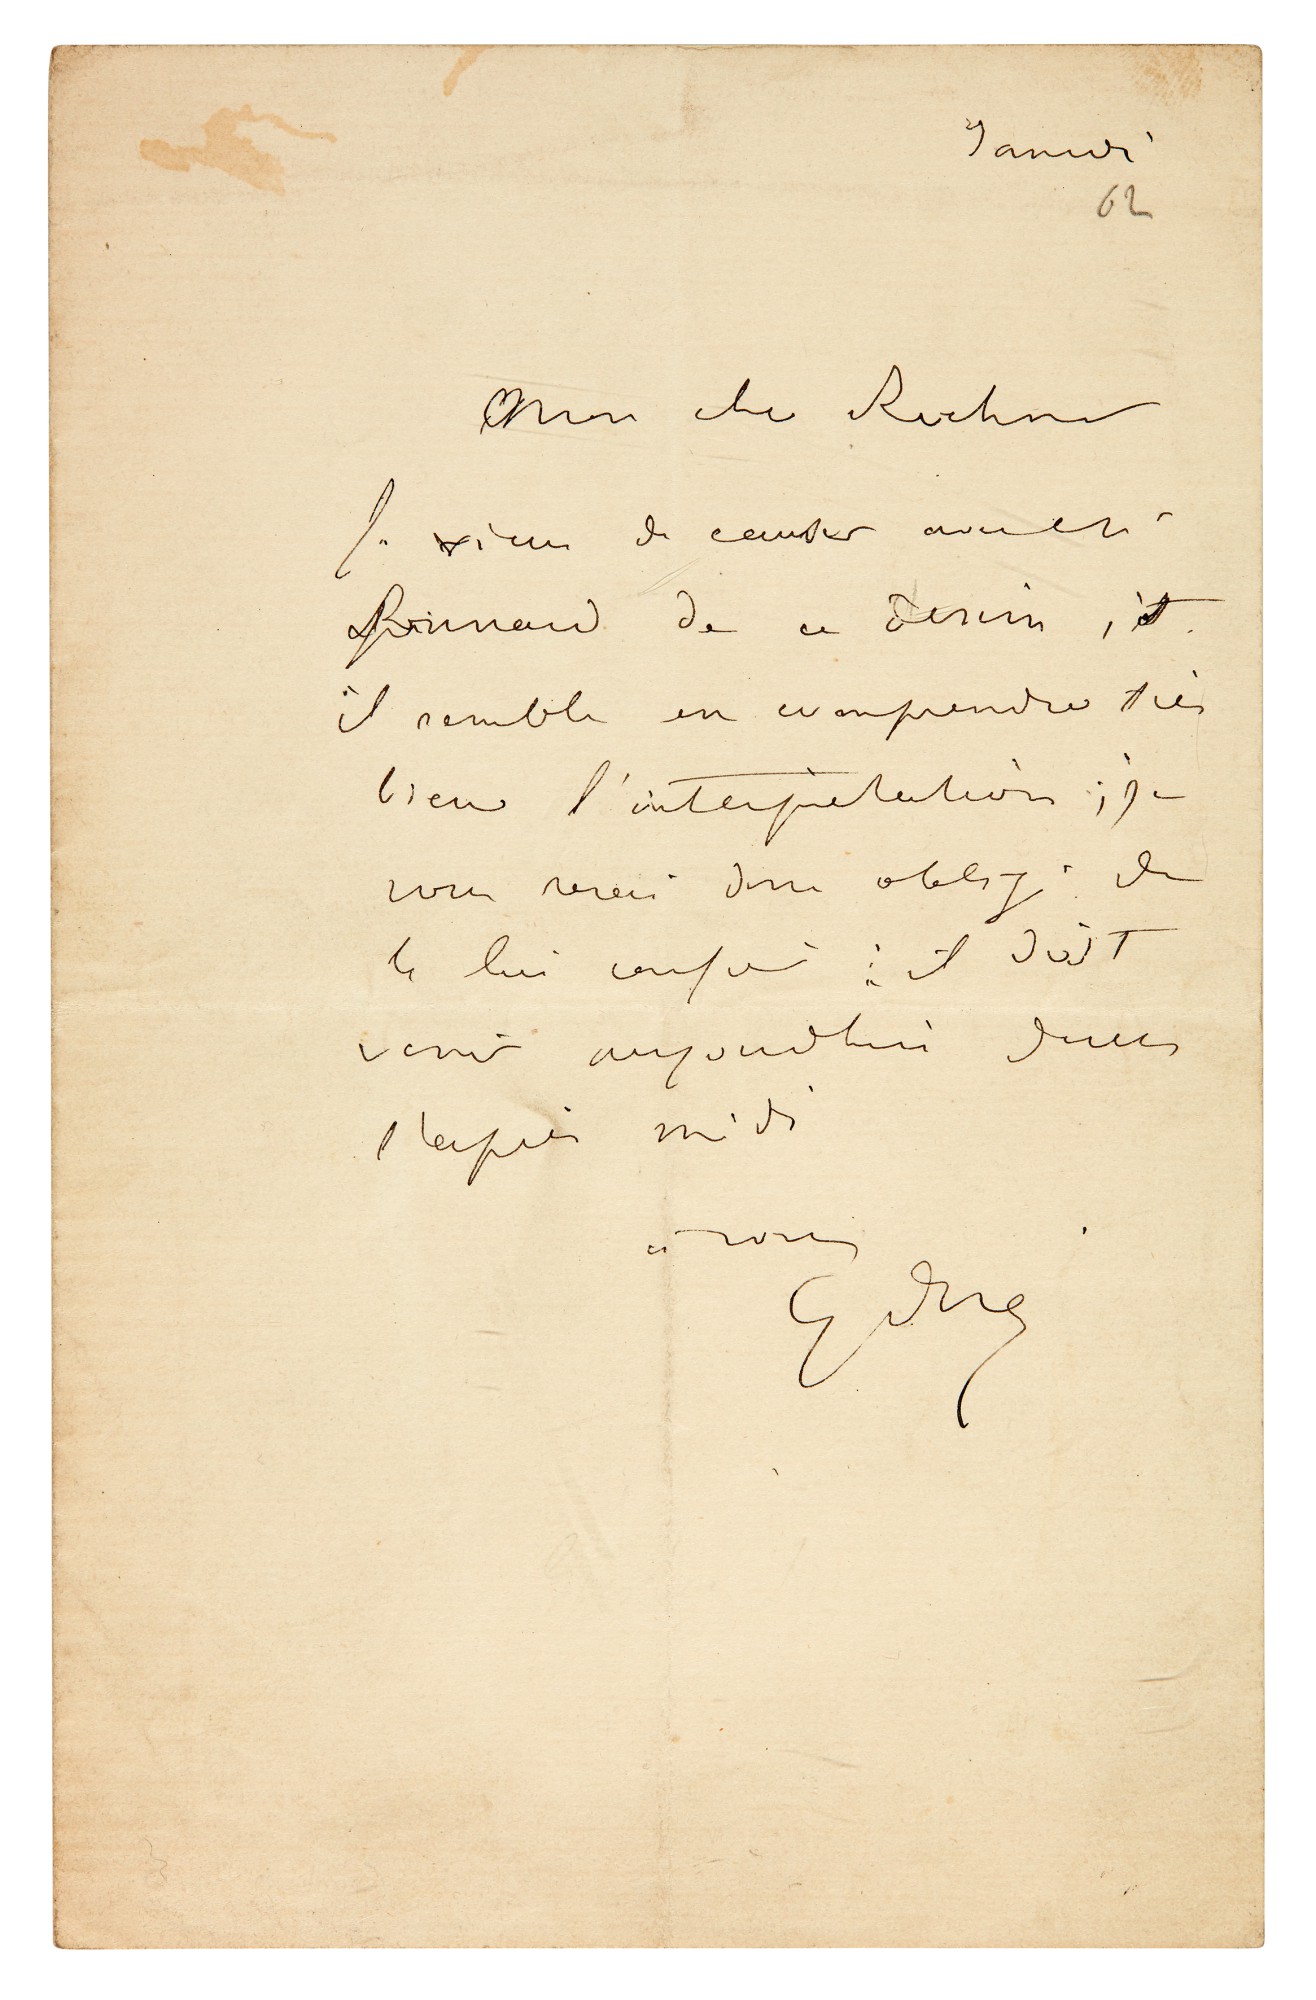 Samedi
62
Mon cher
Je viens de causer avec
de ce dessin, et
il semble en comprendre très
bien l'interprétation ; je
vous serai donc obligé de
le lui confier : il doit
venir aujourdhui dans
l'après midi
à vous
G Doré